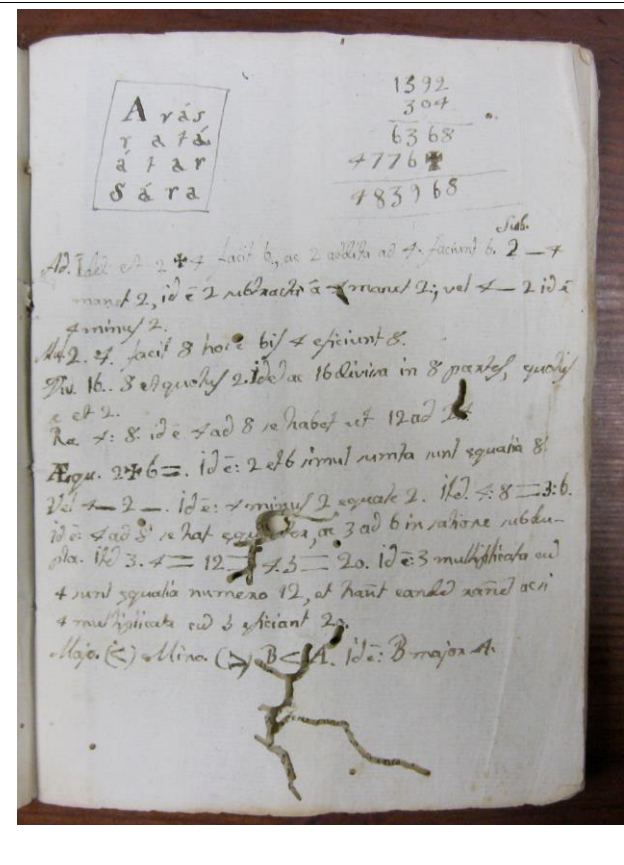 A r á s
r a t á
á t a r
S á r a
1592
304
6368
4776✠
483968
Sub.
Ad. Idẽ et 2 ✠ 4 facit 6, ac 2 addita ad 4. faciunt 6. 2 — 4
manet 2, id ẽ 2 subtracti à 4 manet 2; vel 4 — 2 id ẽ
4 minus 2.
2. 4. facit 8 hoc ẽ bis 4 eficiunt 8.
Div. 16.. 8 et quotus 2. Id ẽ ac 16 divisa in 8 partes, quotus
et 2.
Ra. 4: 8. id ẽ 4 ad 8 se habet ut 12 ad
Æqu. 2✠6=. id ẽ: 2 et 6 simul sumta sunt equalia 8.
Vel 4 — 2 —. id ẽ: 4 minus 2 equale 2. 4: 8=3:6.
id ẽ: 4 ad 8 se hat ac 3 ad 6 in ratione subdu-
pla. 3. 4= 12 4. 5 = 20. id ẽ: 3 multiplicata cũ
4 sunt equalia numero 12, et ac si
4 multiplicata cũ 5 eficiant 20.
Majo. (<) Mino. (>) B<A. id ẽ: B major A.